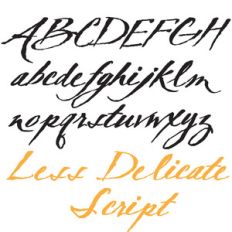 ABCDEFGH
abcdefghijklm
nopqrstuvwxyz
Less Delicate
Script